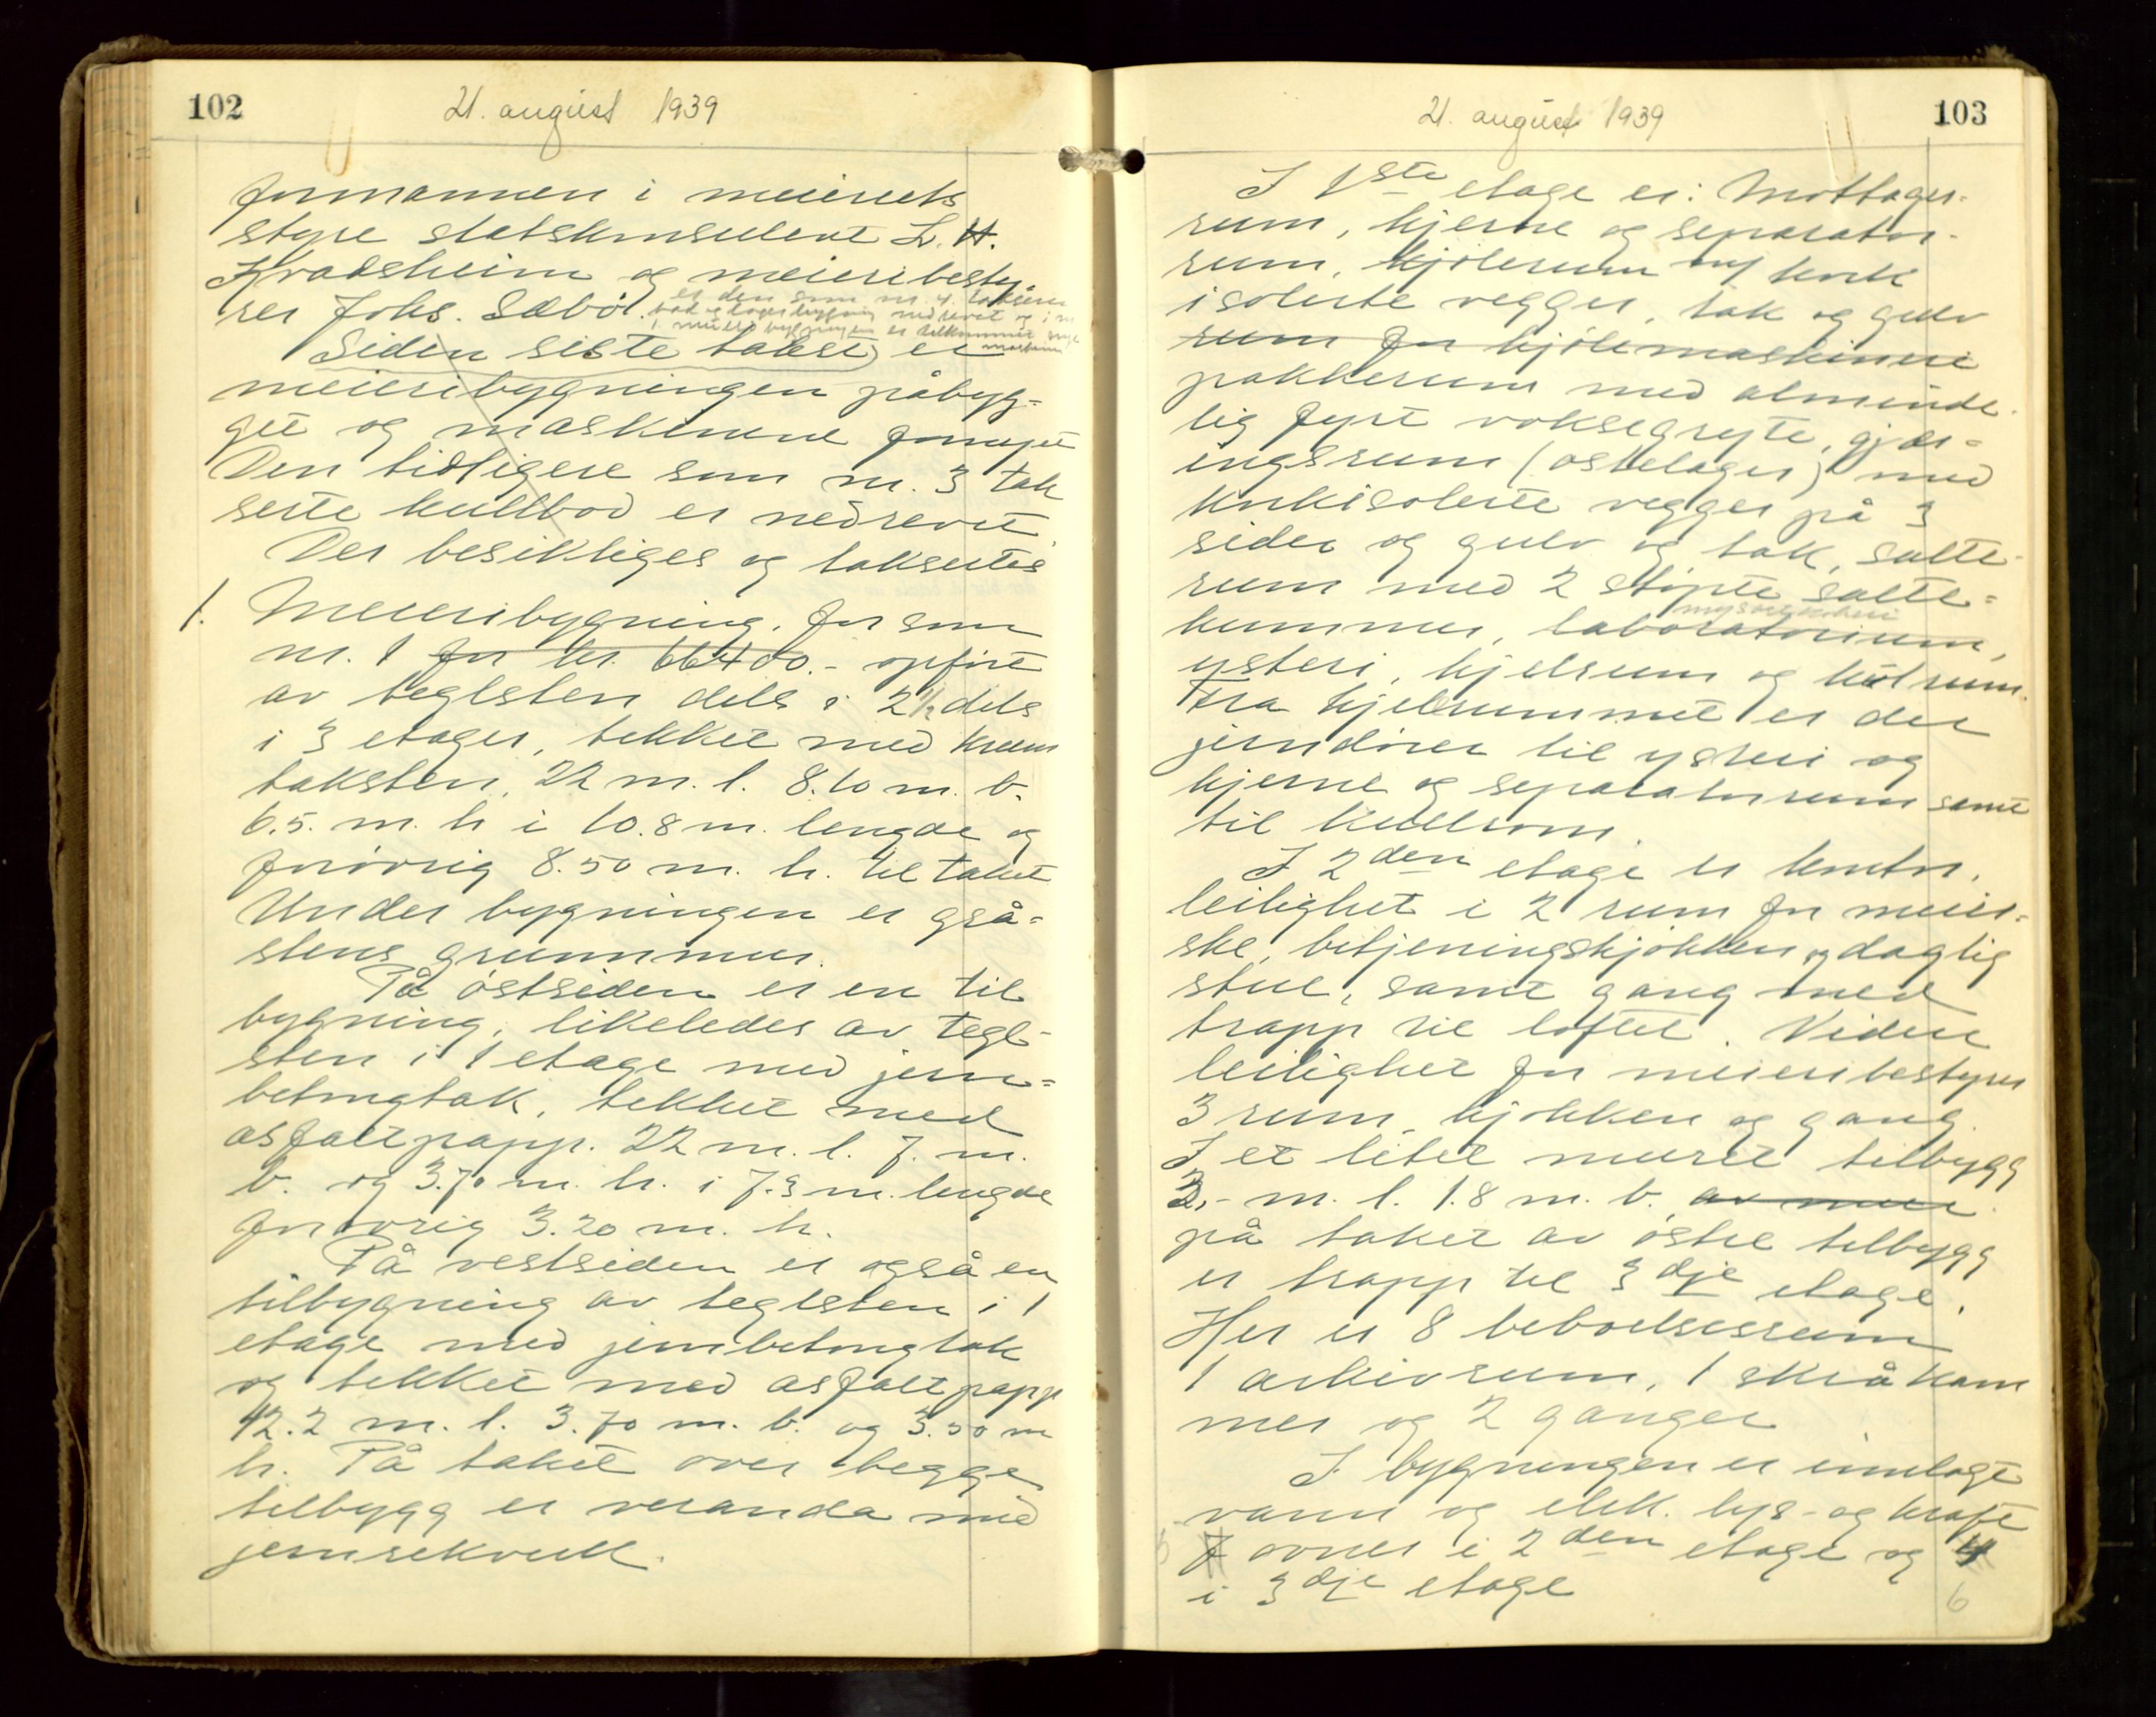 102
21. august 1939
formannen i meieriets
styre statskonsulent L. H.
Kvadsheim og meieribesty-
rer Johs. Sæbö.
er den som nr. 4. takserte
bod og lagerbygning nedrevet og i
i meieribygningen er tilkommet nye
maskiner
Siden siste takst er
meieribygningen påbyg-
get og maskinene fornyet
Den tidligere som nr. 3 tak
serte kullbod er nedrevet
Der besiktiges og takseres
1. Meieribygning, før som
nr. 1 for kr. 66400.- opført
av teglsten dels i 2 1/2 dels
i 3 etager, tekket med krum
taksten, 22 m. l. 8.10 m. b.
6.5. m. h i 10.8 m. lengde og
forøvrig 8.50 m. h. til taket
Under bygningen er grå-
stens grunnmur.
På östsiden er en til
bygning, likeledes av tegl-
sten i 1 etage med jern-
betongtak, tekket med
asfaltpapp. 22 m. l. 7. m.
b. og 3.70 m. h. i 7.3 m. lengde
forøvrig 3.20 m. h.
På vestsiden er også en
tilbygning av teglsten i 1
etage med jernbetongtak
og tekket med asfaltpapp
42.2 m. l. 3.70 m. b. og 3.50 m
h. På taket over begge
tilbygg er veranda med
jernrekverk.
103
21. august 1939
I 1ste etage er: Mottager-
rum, kjerne og separator-
rum, kjölerum m/ kork
isolerte vegger, tak og gulv
rum for kjölemaskineri
pakkerum med alminde-
lig fyrt voksegryte, gjær-
ingsrum (ostelager) med
korkisolerte vegger på 3
sider og gulv og tak, salte-
rum med 2 støpte salte-
mysostkokeri
kummer, laboratorium,
ysteri, kjelrum og kulrum.
Fra kjelrummet er der
jerndører til ysteri og
kjerne og separatorrum samt
til kullrom.
I 2den etage er kontor,
leilighet i 2 rum for meier-
ske, betjeningskjökken og daglig
stue, samt gang med
trapp til loftet. Videre
leilighet for meieribestyrer
3 rum, kjökken og gang.
I et litet muret tilbygg
2,- m. l. 1.8 m. b. av mur
på taket av östre tilbygg
er trapp til 3dje etage.
Her er 8 beboelsesrum
1 arkivrum, 1 skråkam
mer og 2 ganger
I bygningen er innlagt
vann og elek. lys- og kraft
5 7 ovner i 2den etage og 4
i 3dje etage 6